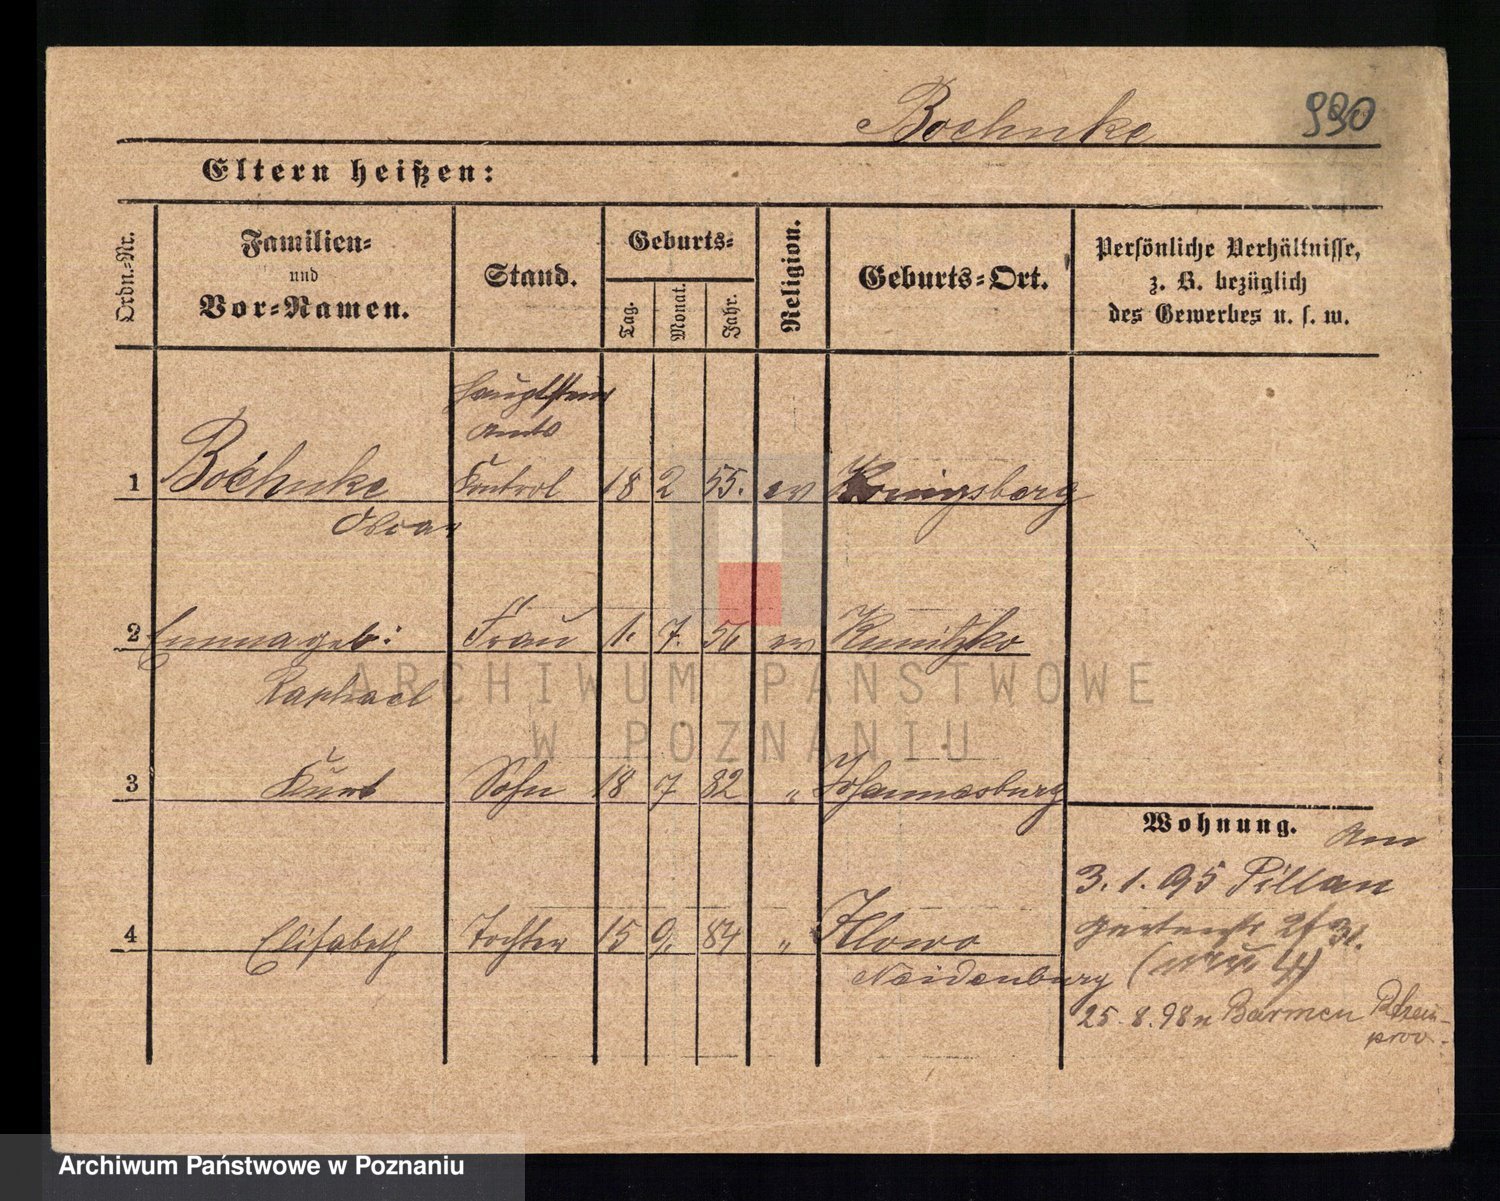 Boehnke 990
Eltern heißen:
Ordn.-Nr.
Familien-
und
Vor-Namen.
Stand.
Geburts-
Tag.
Monat.
Jahr.
Religion.
Geburts-Ort.
Persönliche Verhältnisse,
z. B. bezüglich
des Gewerbes u. s. w.
Hauptsteuer
Amts
1 Boehnke Control 18 2 55. ev Königsberg
Oscar
2 Emma geb: Frau 1. 7. 56 ev
Raphael
3 Kurt Sohn 18 7 82 " Johannesburg
Wohnung. Am
3.1.95 Pillau
Gartenstr
4 Elisabeth Tochter 15 9. 84 " Illowo
Neidenburg
25.8.98 n Barmen Rhein-
prov.
ARCHIWUM PAŃSTWOWE
W POZNANIU
Archiwum Państwowe w Poznaniu